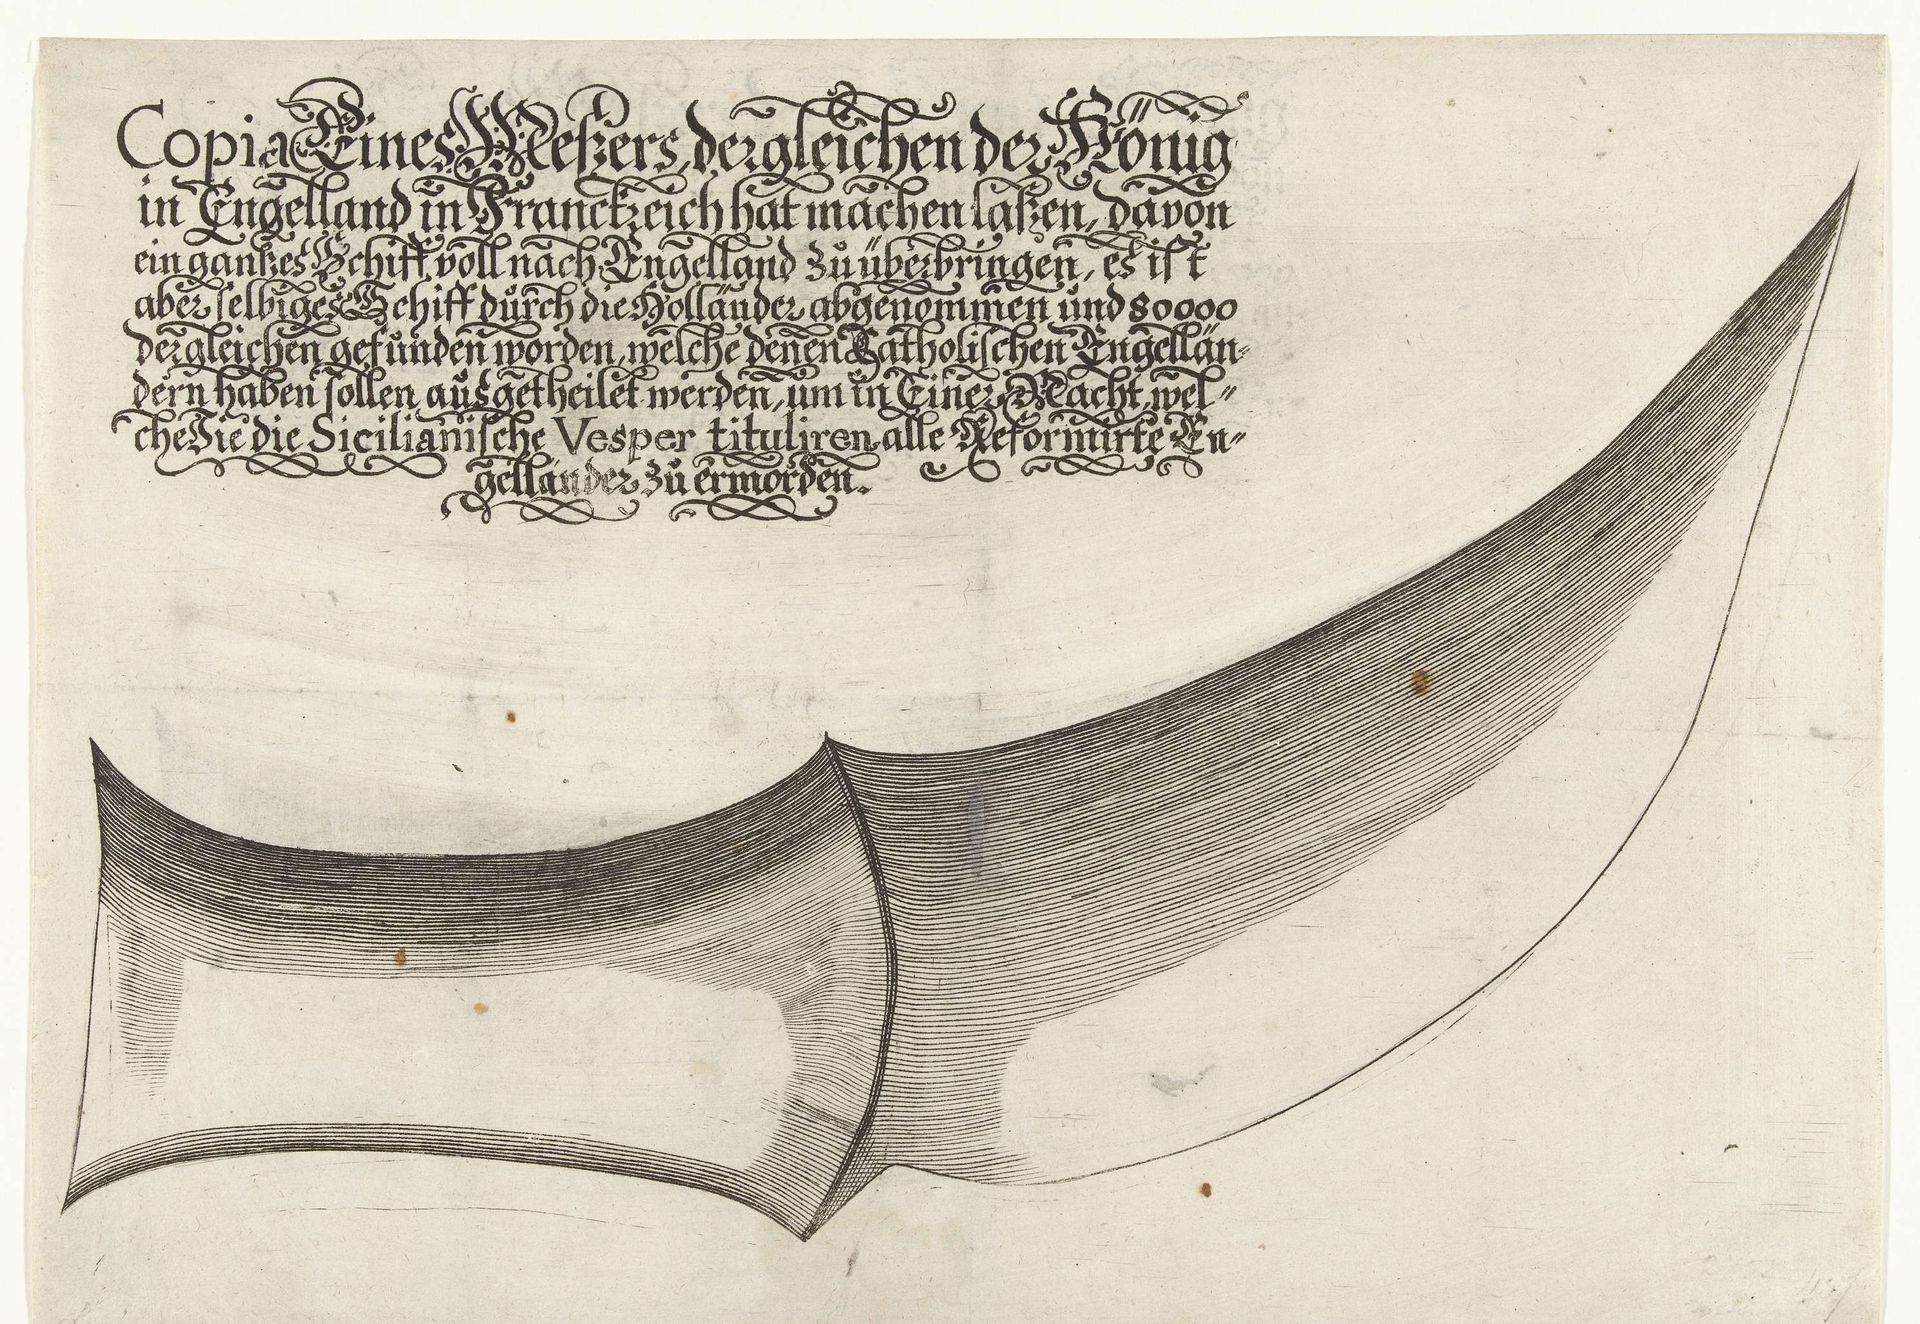 Copia Eines Meßers, dergleichen der König
in Engelland in Franckreich hat machen laßen, davon
ein gantzes Schiff voll nach Engelland zu überbringen, es ist
aber selbiges Schiff durch die Holländer abgenommen und 80000
dergleichen gefunden worden, welche denen Catholischen Engellän-
dern haben sollen ausgetheilet werden, um in Einer Nacht, wel-
che Sie die Sicilianische Vesper tituliren, alle Reformirte En-
gelländer zu ermorden.